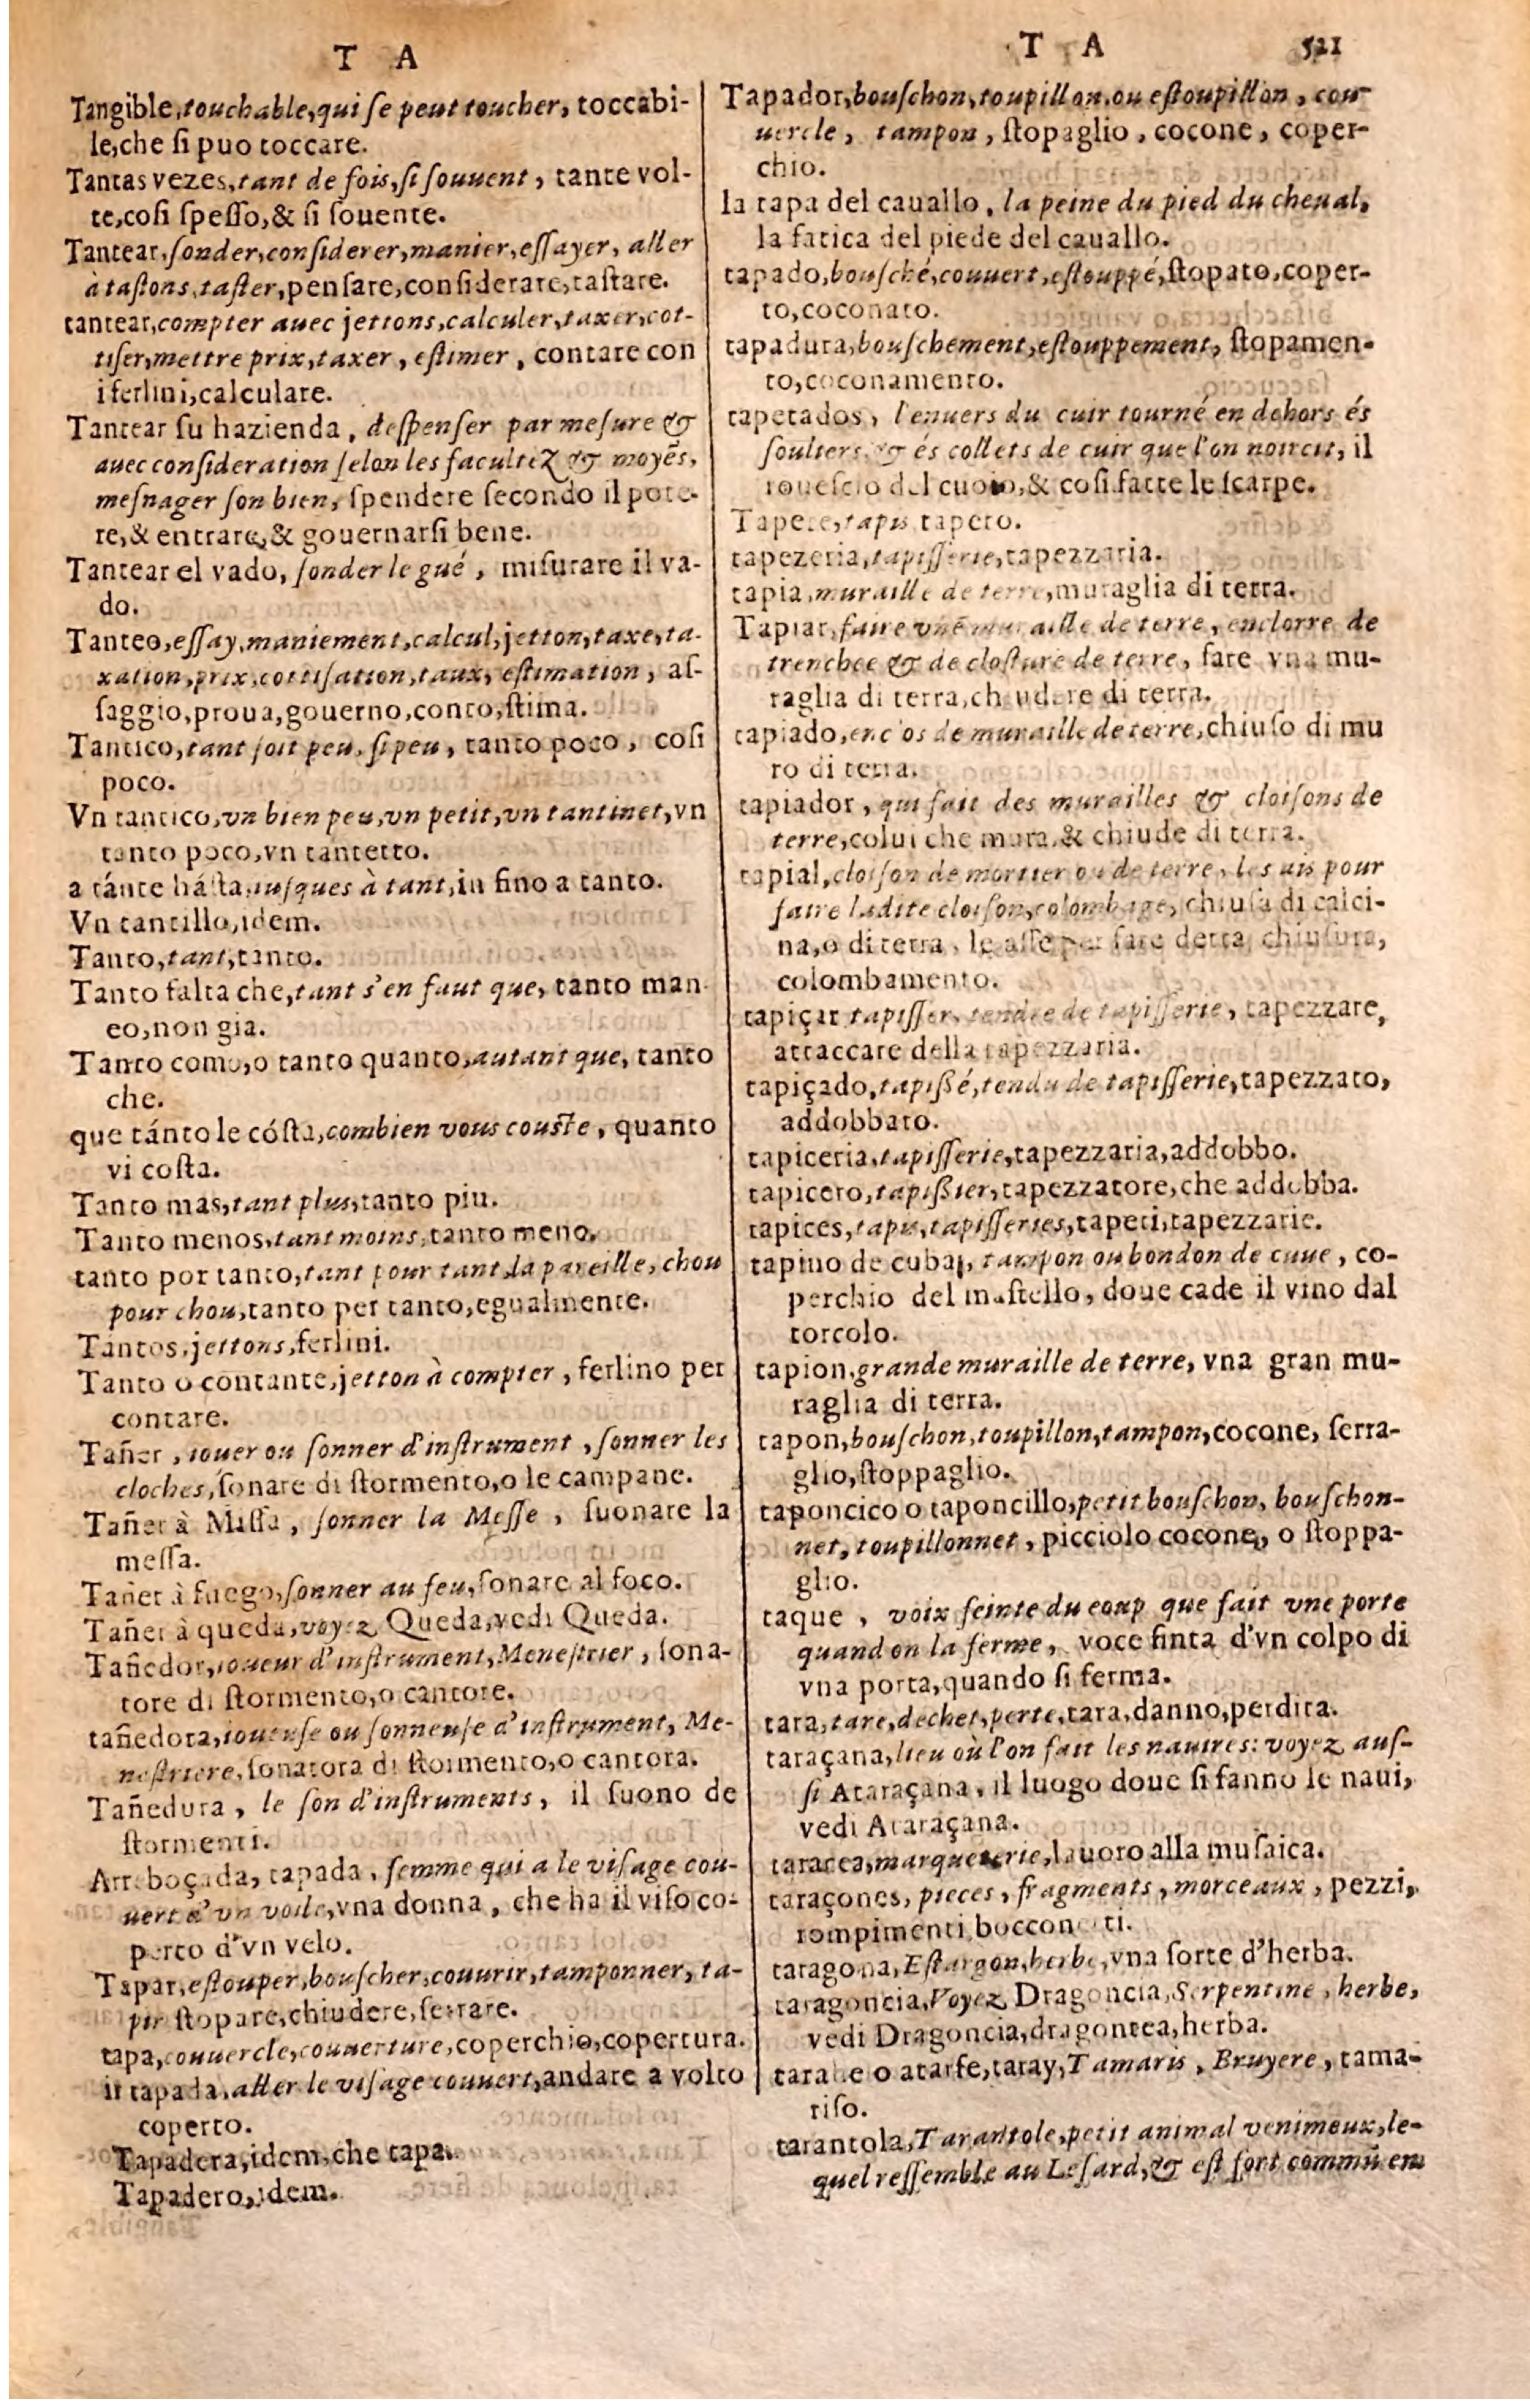 T A
Tangible, touchable, qui se peut toucher, toccabi-
le, che si puo toccare.
Tantas vezes, tant de fois, si souuent, tante vol-
te, cosi spesso, & si souente.
Tantear, sonder, considerer, manier, essayer, aller
à tastons, taster, pensare, considerare, tastare.
tantear, compter auec jettons, calculer, taxer, cot-
tiser, mettre prix, taxer, estimer, contare con
i ferlini, calculare.
Tantear su hazienda, despenser par mesure &
auec consideration selon les facultez & moyẽs,
mesnager son bien, spendere secondo il pote-
re, & entrare, & gouernarsi bene.
Tantear el vado, sonder le gué, misurare il va-
do.
Tanteo, essay, maniement, calcul, jetton, taxe, ta-
xation, prix, cottisation, taux, estimation, as-
saggio, proua, gouerno, conto, stima.
Tantico, tant soit peu, si peu, tanto poco, cosi
poco.
Vn tantico, vn bien peu, vn petit, vn tantinet, vn
tanto poco, vn tantetto.
a tánte hásta, iusques à tant, in fino a tanto.
Vn tantillo, idem.
Tanto, tant, tanto.
Tanto falta che, tant s'en faut que, tanto man
eo, non gia.
Tanto como, o tanto quanto, autant que, tanto
che.
que tánto le cósta, combien vous couste, quanto
vi costa.
Tanto mas, tant plus, tanto piu.
Tanto menos, tant moins, tanto meno.
tanto por tanto, tant pour tant, la pareille, chou
pour chou, tanto per tanto, egualmente.
Tantos, jettons, ferlini.
Tanto o contante, jetton à compter, ferlino per
contare.
Tañer, iouer ou sonner d'instrument, sonner les
cloches, sonare di stormento, o le campane.
Tañer à Missa, sonner la Messe, suonare la
messa.
Tañer à fuego, sonner au feu, sonare al foco.
Tañer à queda, voyez Queda, vedi Queda.
Tañedor, ioueur d'instrument, Menestrier, sona-
tore di stormento, o cantore.
tañedora, ioueuse ou sonneuse d'instrument, Me-
nestriere, sonatora di stormento, o cantora.
Tañedura, le son d'instruments, il suono de
stormenti.
Arreboçada, tapada, femme qui a le visage cou-
uert d'vn voile, vna donna, che ha il viso co-
perto d'vn velo.
Tapar, estouper, bouscher, couurir, tamponner, ta-
pir stopare, chiudere, serrare.
tapa, couuercle, couuerture, coperchio, copertura.
ir tapada, aller le visage couuert, andare a volto
coperto.
Tapadera, idem, che tapa.
Tapadero, idem.
T A 521
Tapador, bouschon, toupillon, ou estoupillon, cou-
uercle, tampon, stopaglio, cocone, coper-
chio.
la tapa del cauallo, la peine du pied du cheual,
la fatica del piede del cauallo.
tapado, bousché, couuert, estouppé, stopato, coper-
to, coconato.
tapadura, bouschement, estouppement, stopamen-
to, coconamento.
tapetados, l'enuers du cuir tourné en dehors és
souliers, & és collets de cuir que l'on noircit, il
rouescio del cuoio, & cosi fatte le scarpe.
Tapete, tapis tapeto.
tapezeria, tapisserie, tapezzaria.
tapia, muraille de terre, muraglia di terra.
Tapiar, faire vne muraille de terre, enclorre de
trenchee & de closture de terre, fare vna mu-
raglia di terra, chiudere di terra.
tapiado, enclos de muraille de terre, chiuso di mu
ro di terra.
tapiador, qui fait des murailles & cloisons de
terre, colui che mura, & chiude di terra.
tapial, cloison de mortier ou de terre, les ais pour
faire ladite cloison, colombage, chiusa di calci-
na, o di terra, le asse per fare detta chiusura,
colombamento.
tapiçar tapisser, tendre de tapisserie, tapezzare,
attaccare della tapezzaria.
tapiçado, tapissé, tendu de tapisserie, tapezzato,
addobbato.
tapiceria, tapisserie, tapezzaria, addobbo.
tapicero, tapissier, tapezzatore, che addobba.
tapices, tapis, tapisseries, tapeti, tapezzarie.
tapino de cuba, tampon ou bondon de cuue, co-
perchio del mastello, doue cade il vino dal
torcolo.
tapion, grande muraille de terre, vna gran mu-
raglia di terra.
tapon, bouschon, toupillon, tampon, cocone, serra-
glio, stoppaglio.
taponcico o taponcillo, petit bouschon, bouschon-
net, toupillonnet, picciolo cocone, o stoppa-
glio.
taque, voix feinte du coup que fait vne porte
quand on la ferme, voce finta d'vn colpo di
vna porta, quando si ferma.
tara, tare, dechet, perte, tara, danno, perdita.
taraçana, lieu où l'on fait les nauires: voyez aus-
si Ataraçana, il luogo doue si fanno le naui,
vedi Ataraçana.
taracea, marqueterie, lauoro alla musaica.
taraçones, pieces, fragments, morceaux, pezzi,
rompimenti bocconcetti.
taragona, Estargon, herbe, vna sorte d'herba.
taragoncia, Voyez Dragoncia, Serpentine, herbe,
vedi Dragoncia, dragontea, herba.
tarahe o atarfe, taray, Tamaris, Bruyere, tama-
riso.
tarantola, Tarantole, petit animal venimeux, le-
quel ressemble au Lesard, & est fort commũ en